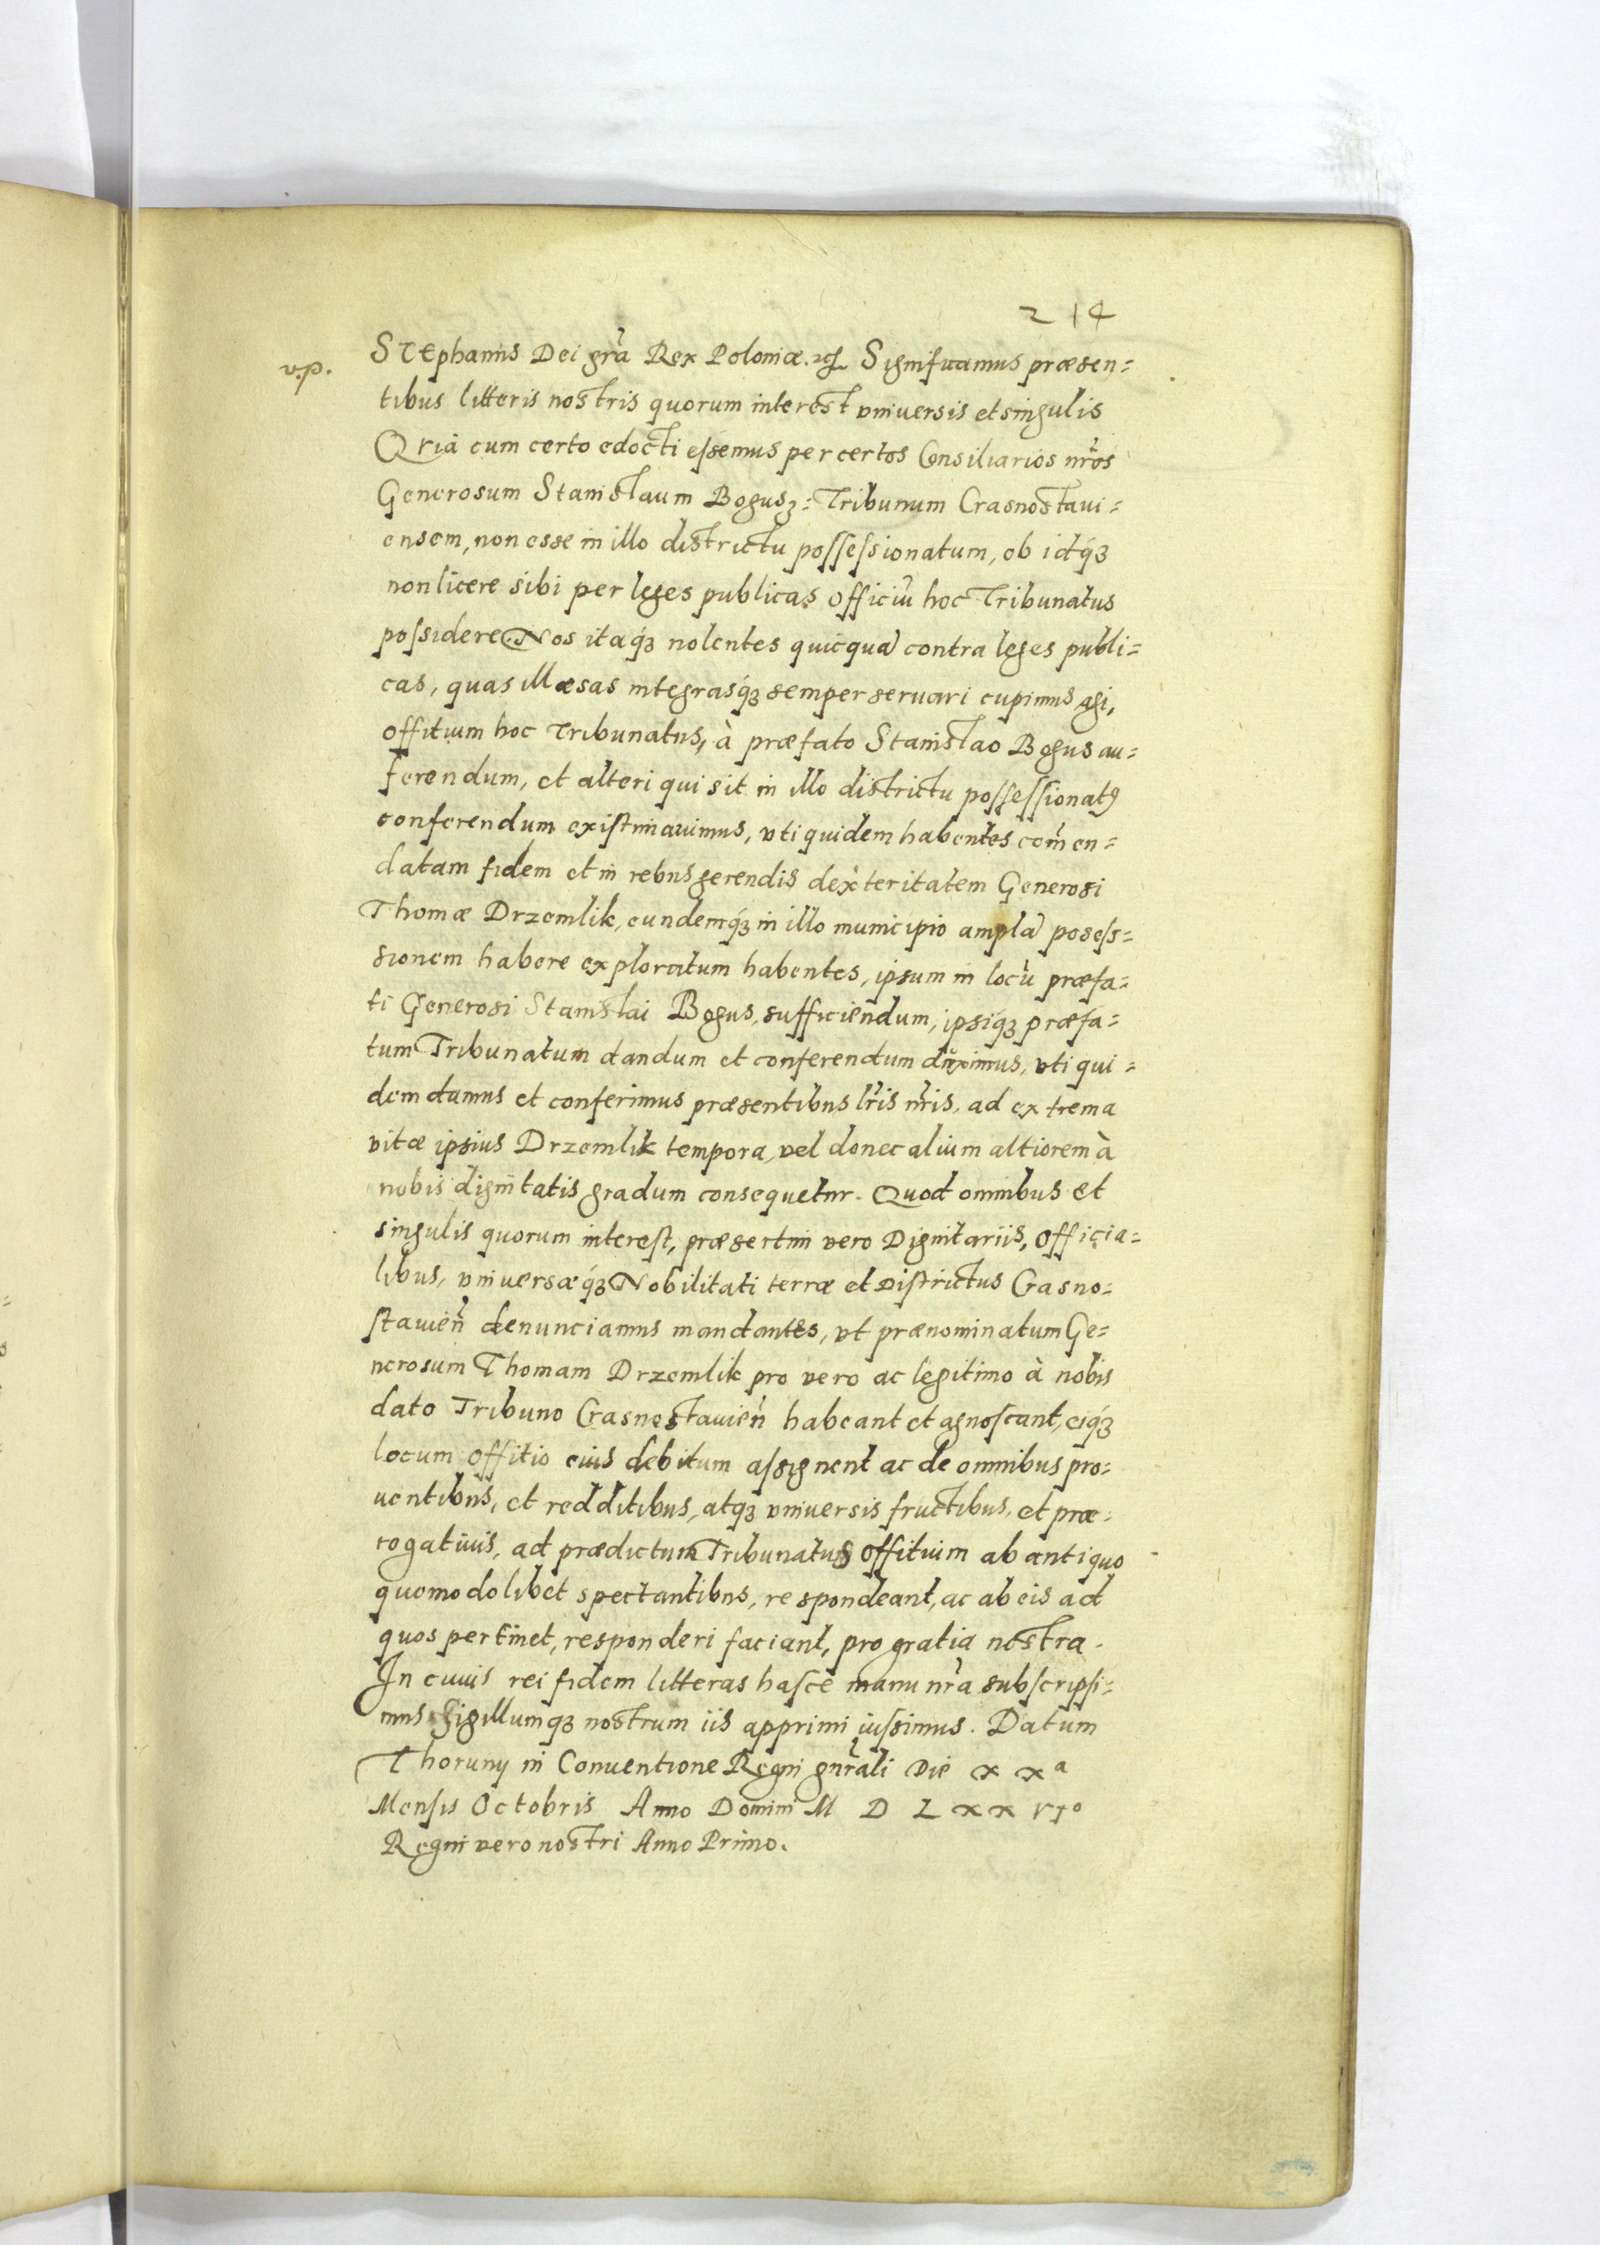 214
v.p.
Stephanus Dei gra Rex Poloniæ. Significamus præsen=
tibus litteris nostris quorum interest vniversis et singulis
Quia cum certo edocti essemus per certos Consiliarios nros
Generosum Stanislaum Bogusz = Tribunum Crasnostaui=
ensem, non esse in illo districtu possessionatum, ob idq́ꝫ
non licere sibi per leges publicas officiu hoc Tribunatus
possidere. Nos itaq́ꝫ nolentes quicqua contra leges publi=
cas, quas illæsas integrasq́ꝫ semper seruari cupimus agi,
offitium hoc Tribunatus, à præfato Stanislao Bogus au=
ferendum, et alteri qui sit in illo districtu possessionatꝰ
conferendum existimauimus, vti quidem habentes comen=
datam fidem et in rebus gerendis dexteritatem Generosi
Thomæ Drzemlik, eundemq́ꝫ in illo municipio ampla posess=
sionem habere exploratum habentes, ipsum in locu præfa=
ti Generosi Stanislai Bogus, sufficiendum, ipsiq́ꝫ præfa=
tum Tribunatum dandum et conferendum duximus, vti qui=
dem damus et conferimus præsentibus lris nris, ad extrema
vitæ ipsius Drzemlik tempora, vel donec alium altiorem à
nobis dignitatis gradum consequetur. Quod omnibus et
singulis quorum interest, præsertim vero Dignitariis, officia=
libus, vniversæq́ꝫ Nobilitati terræ et Districtus Crasno=
stauien denunciamus mandantes, vt prænominatum Ge=
nerosum Thomam Drzemlik pro vero ac legitimo à nobis
dato Tribuno Crasnostauien habeant et agnoscant, eiq́ꝫ
locum offitio eius debitum assignent ac de omnibus pro=
uentibus, et redditibus, atqꝫ vniversis fructibus, et præ=
rogatiuis, ad prædictum Tribunatus offitium ab antiquo
quomodolibet spectantibus, respondeant, ac ab eis ad
quos pertinet, responderi faciant, pro gratia nostra.
In cuius rei fidem litteras hasce manu nra subscripsi=
mus Sigillumqꝫ nostrum iis apprimi iussimus. Datum
Thoruny in Conuentione Regni gnrali Die x xª
Mensis Octobris Anno Domini M D L x x VIº
Regni vero nostri Anno Primo.